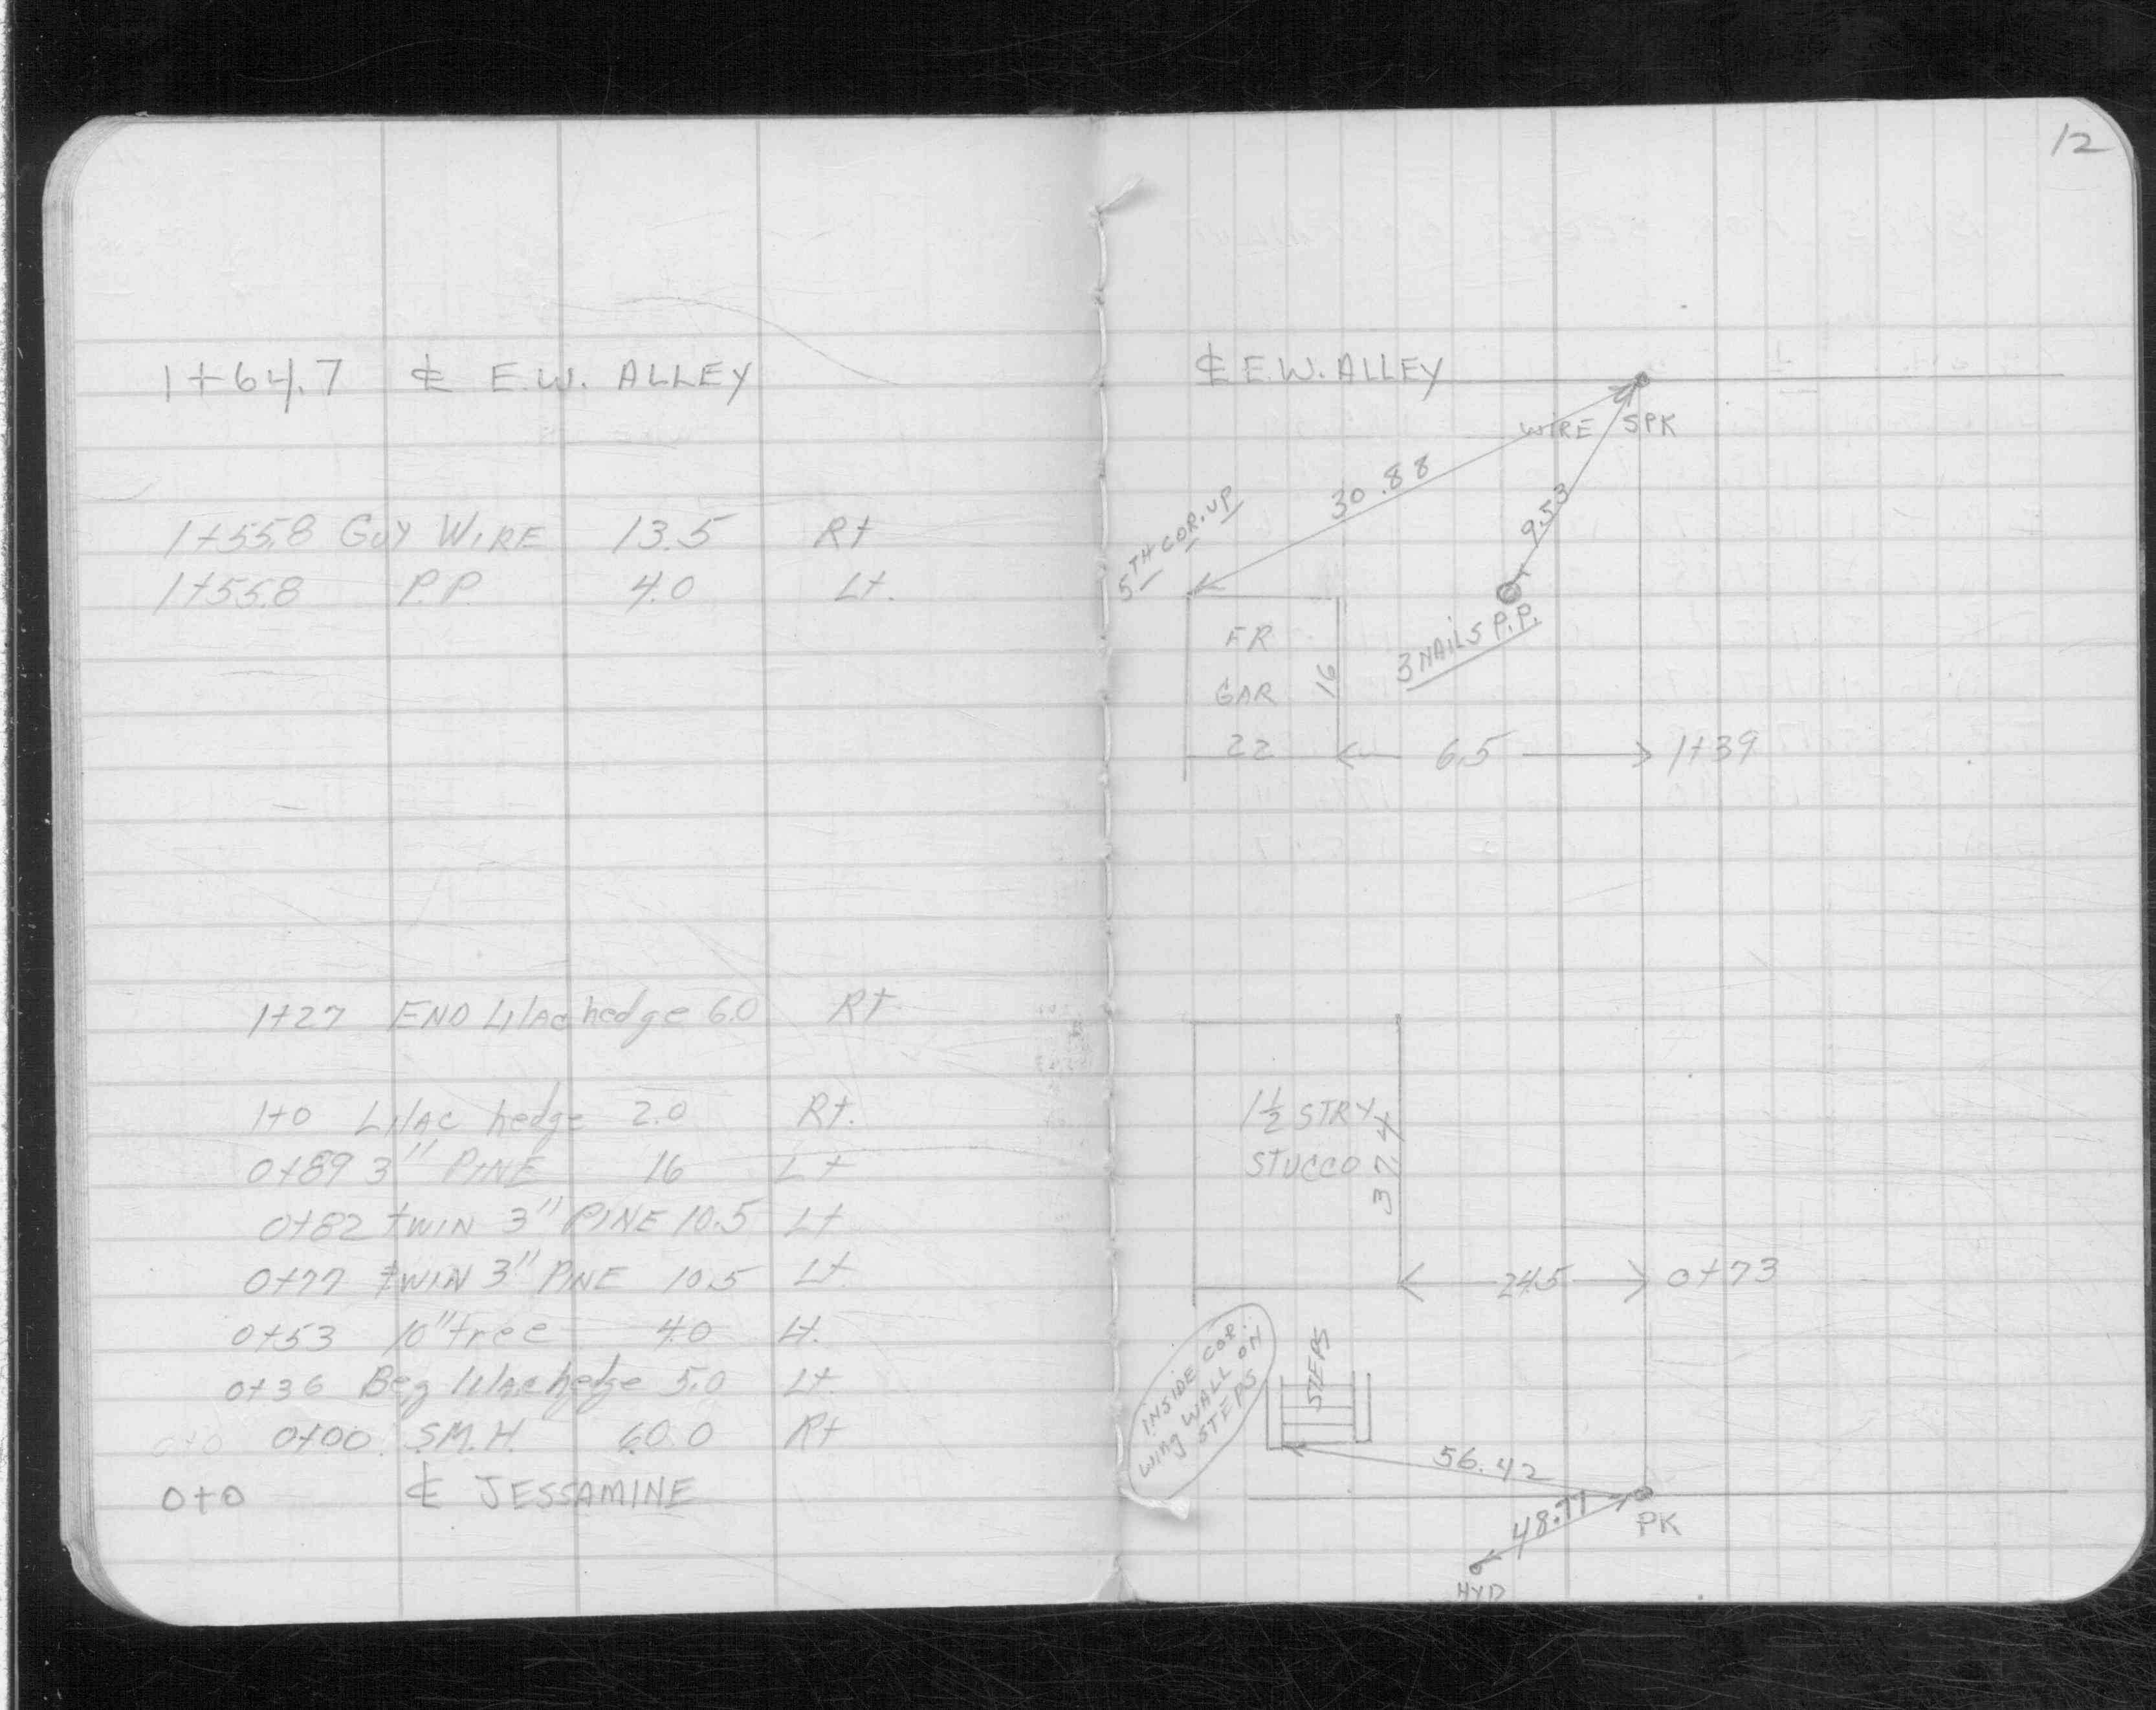 12
1+64.7 ℄ E.W. ALLEY
1+55.8 GUY WIRE 13.5 Rt
1+55.8 P.P. 4.0 Lt.
1+27 END Lilac hedge 6.0 Rt
1+0 Lilac hedge 2.0 Rt.
0+89 3" PINE 16 Lt
0+82 twin 3" PINE 10.5 Lt
0+77 twin 3" PINE 10.5 Lt
0+53 10" tree 4.0 Lt.
0+36 Beg lilac hedge 5.0 Lt
0+0 0+00 S.M.H. 60.0 Rt
0+0 ℄ JESSAMINE
℄ E.W. ALLEY
WIRE SPK
30.88
9.53
5TH COR. UP
3 NAILS P.P.
FR
GAR
22
16
6.5 1+39
1½ STRY
STUCCO
37.4
24.5 0+73
INSIDE COR.
WING WALL ON
STEPS
STEPS
56.42
48.77
PK
HYD